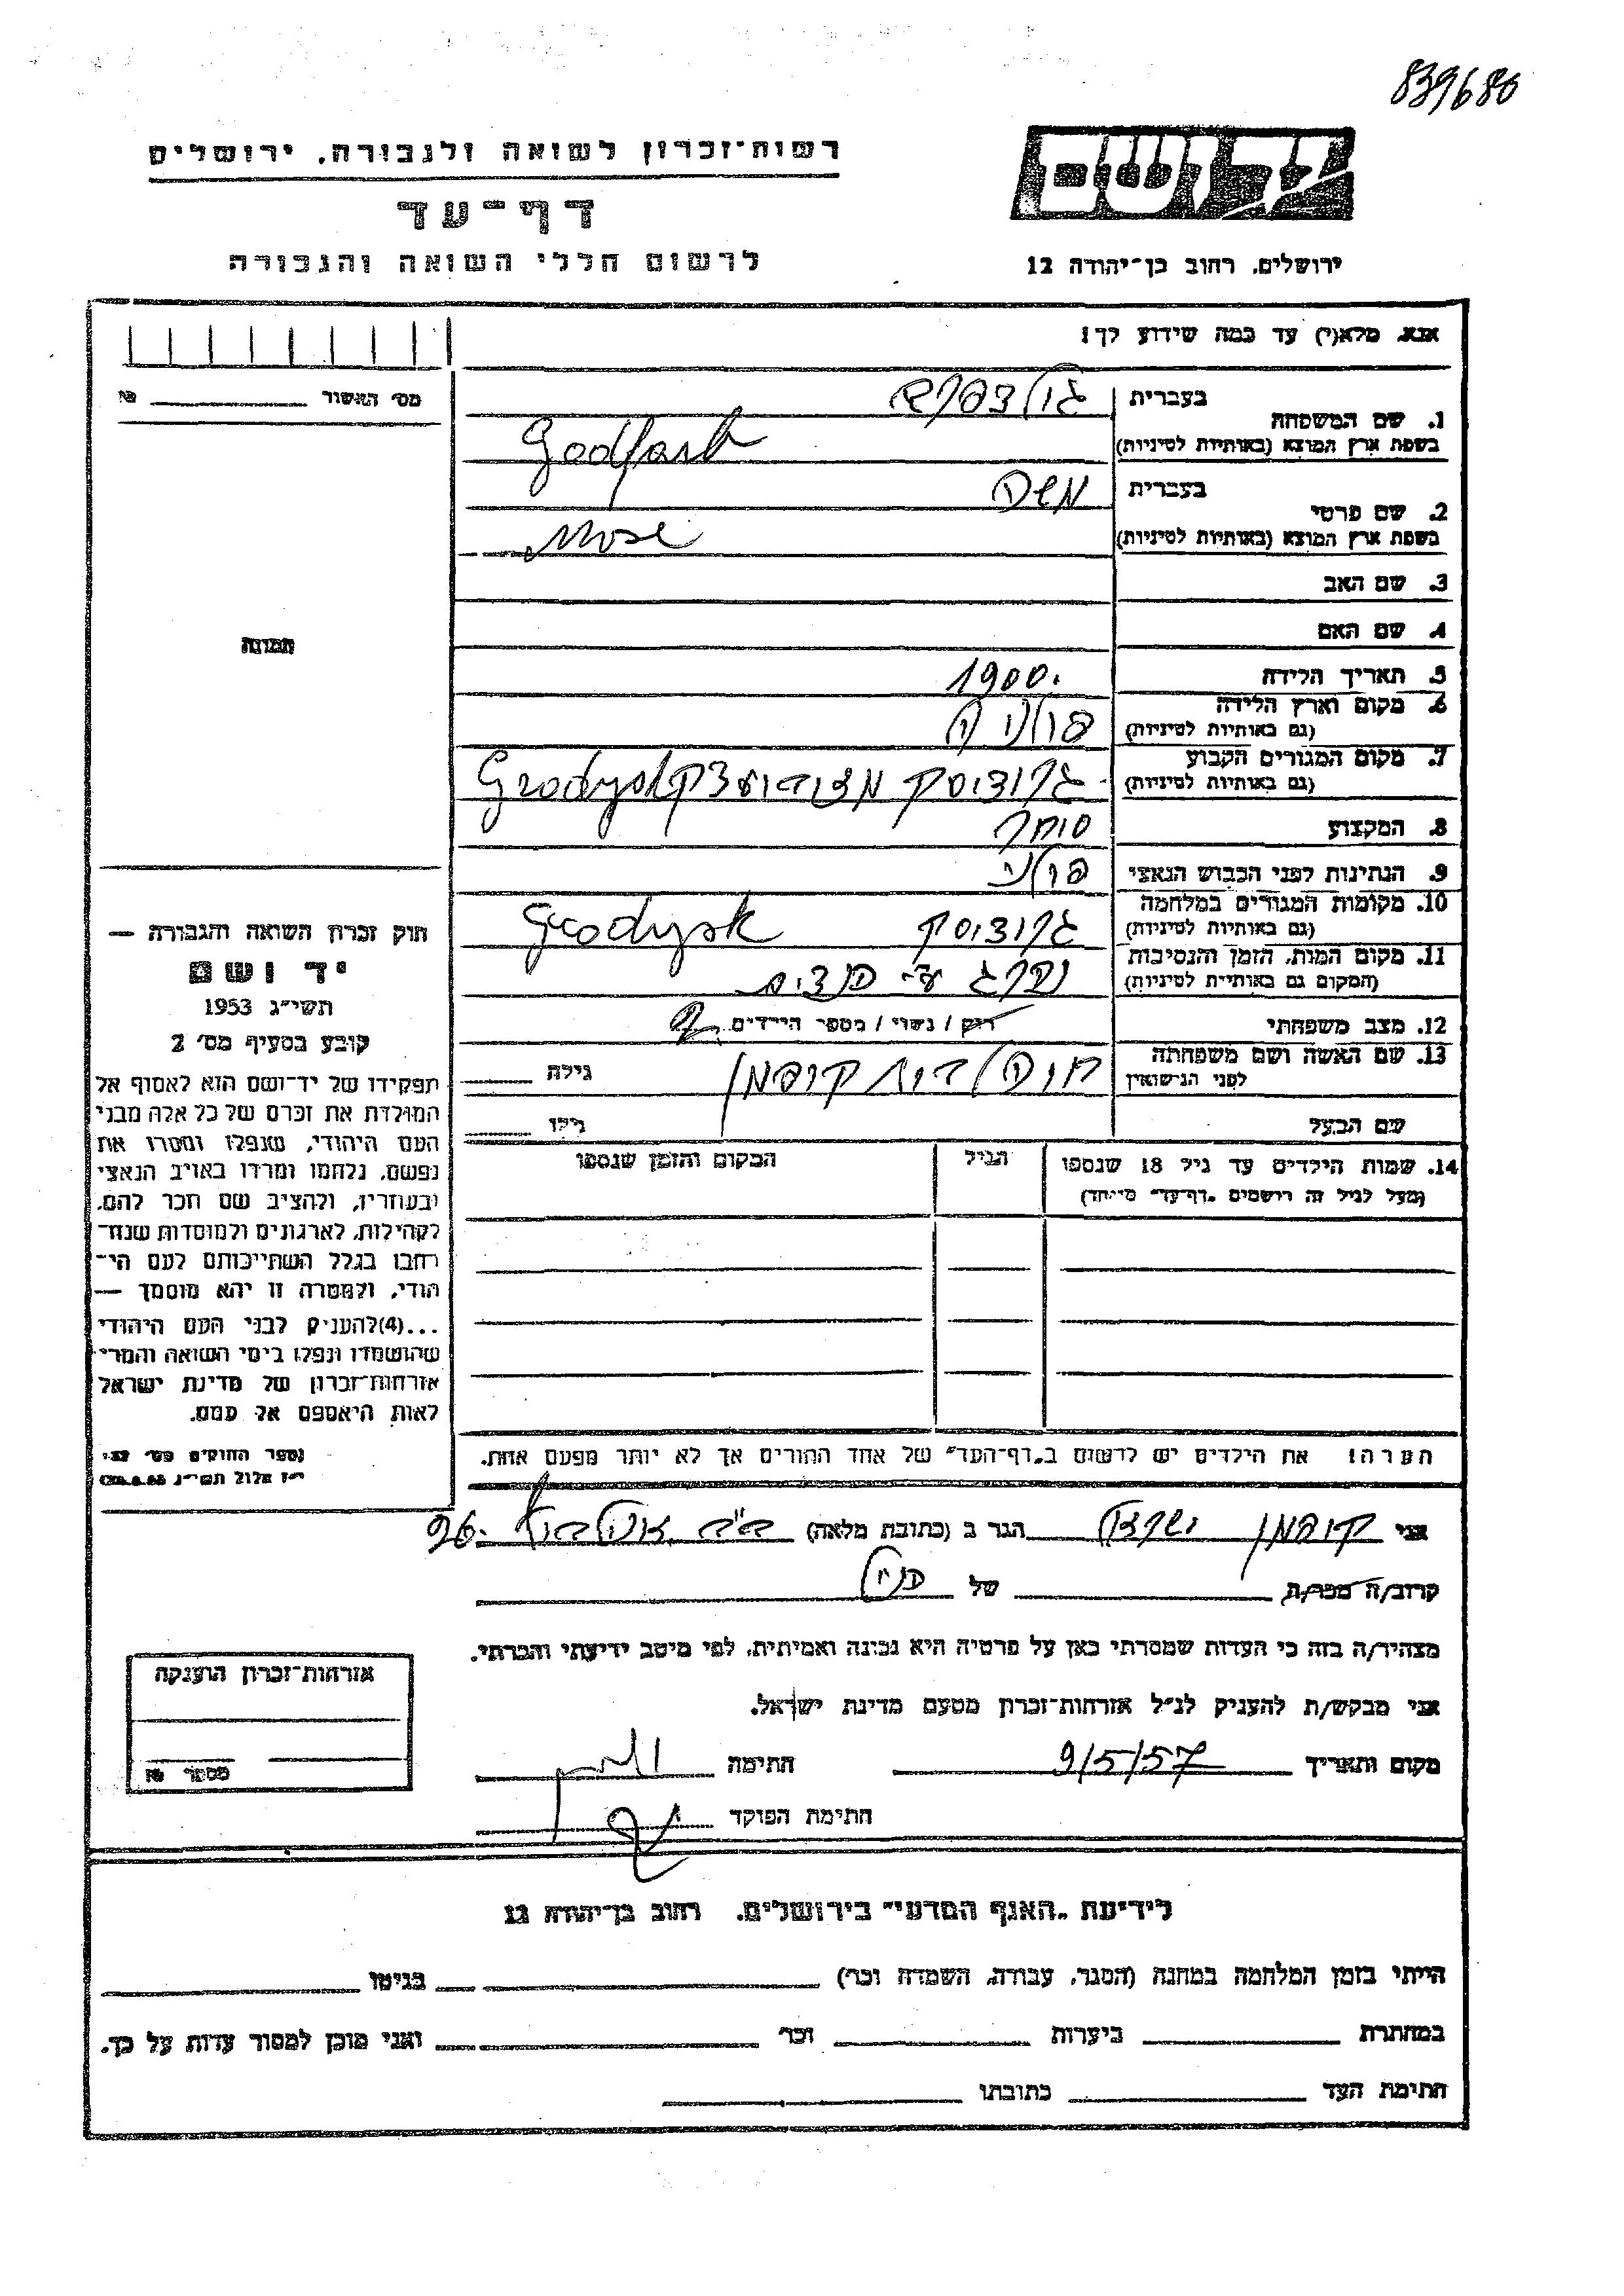 839680
רשות־זכרון לשואה ולגבורה, ירושלים
דף־עד
לרשום חללי השואה והגבורה
יד ושם
ירושלים, רחוב בן־יהודה 12
אנא, מלא(י) עד כמה שידוע לך!
מס' האשור
1. שם המשפחה בעברית גולדפרב
בשפת ארץ המוצא (באותיות לטיניות) Godfarb
2. שם פרטי בעברית משה
בשפת ארץ המוצא (באותיות לטיניות) Mose
3. שם האב
4. שם האם
תמונה
5. תאריך הלידה 1900.
6. מקום וארץ הלידה
(גם באותיות לטיניות) פולניה
7. מקום המגורים הקבוע
(גם באותיות לטיניות) גרודזיסק Grodysk
8. המקצוע סוחר
9. הנתינות לפני הכבוש הנאצי פולני
10. מקומות המגורים במלחמה
(גם באותיות לטיניות) גרודזיסק Grodysk
11. מקום המות, הזמן והנסיבות
(המקום גם באותיות לטיניות) נהרג ע"י
12. מצב משפחתי רוק / נשוי / מספר הילדים
13. שם האשה ושם משפחתה
לפני הנישואין קופמן גילה
שם הבעל גילו
14. שמות הילדים עד גיל 18 שנספו הגיל המקום והזמן שנספו
(מעל לגיל זה רושמים „דף־עד” מיוחד)
הערה! את הילדים יש לרשום ב„דף־העד” של אחד ההורים אך לא יותר מפעם אחת.
חוק זכרון השואה והגבורה —
יד ושם
תשי״ג 1953
קובע בסעיף מס' 2
תפקידו של יד־ושם הוא לאסוף אל
המולדת את זכרם של כל אלה מבני
העם היהודי, שנפלו ומסרו את
נפשם, נלחמו ומרדו באויב הנאצי
ובעוזריו, ולהציב שם וזכר להם,
לקהילות, לארגונים ולמוסדות שנח־
רבו בגלל השתייכותם לעם הי־
הודי, ולמטרה זו יהא מוסמך —
...(4)להעניק לבני העם היהודי
שהושמדו ונפלו בימי השואה והמרי
אזרחות־זכרון של מדינת ישראל
לאות היאספם אל עמם.
ספר החוקים מס'
י״ז אלול תשי״ג
אני קופמן הגר ב (כתובת מלאה) 26.
קרוב/ה מכר/ת של
מצהיר/ה בזה כי העדות שמסרתי כאן על פרטיה היא נכונה ואמיתית, לפי מיטב ידיעתי והכרתי.
אני מבקש/ת להעניק לנ״ל אזרחות־זכרון מטעם מדינת ישראל.
מקום ותאריך 9/5/57 חתימה
חתימת הפוקד
אזרחות־זכרון הוענקה
מספר
לידיעת „האגף המדעי” בירושלים, רחוב בן־יהודה 12
הייתי בזמן המלחמה במחנה (הסגר, עבודה, השמדה וכו') בגיטו
במחתרת ביערות וכו' ואני מוכן למסור עדות על כך.
חתימת העד כתובתו